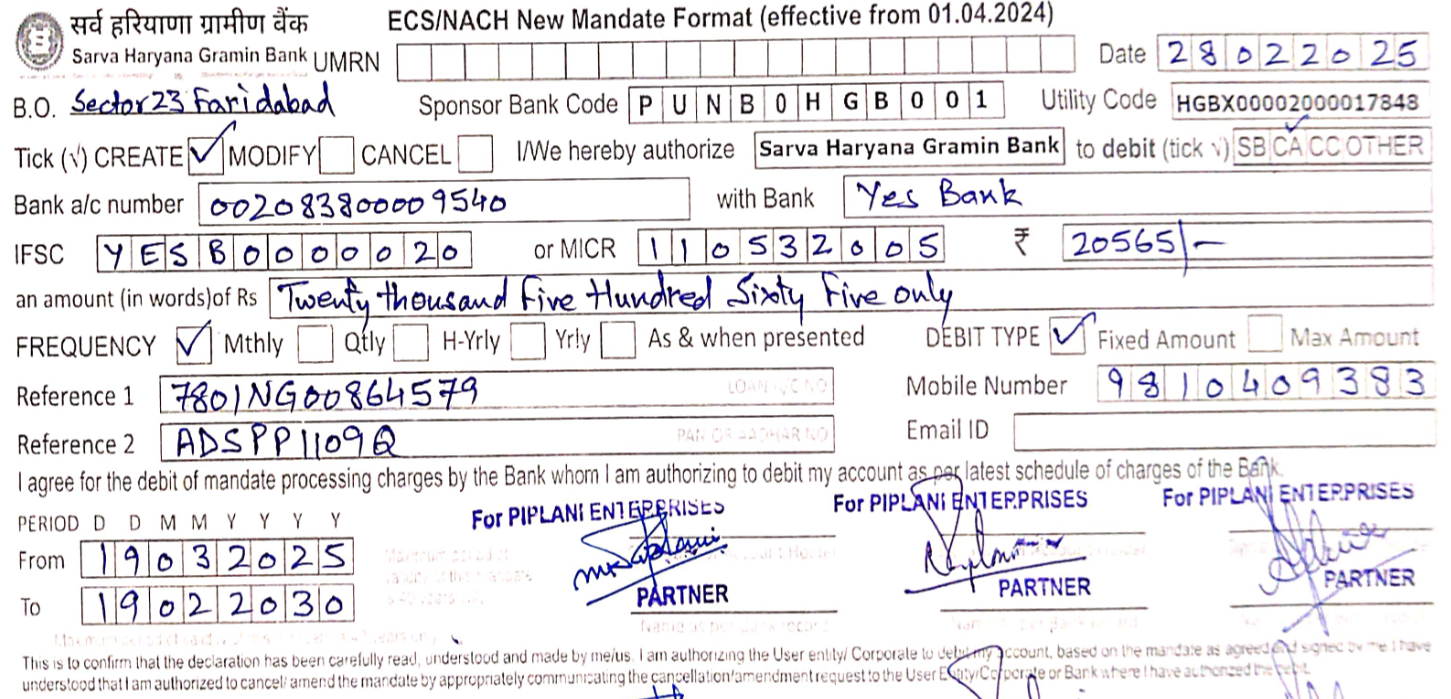 सर्व हरियाणा ग्रामीण बैंक ECS/NACH New Mandate Format (effective from 01.04.2024)
Sarva Haryana Gramin Bank UMRN Date 28022025
B.O. Sector 23 Faridabad Sponsor Bank Code PUNB0HGB001 Utility Code HGBX00002000017848
Tick (√) CREATE ✓ MODIFY CANCEL I/We hereby authorize Sarva Haryana Gramin Bank to debit (tick √) SB CA ✓ CC OTHER
Bank a/c number 002083800009540 with Bank Yes Bank
IFSC YESB0000020 or MICR 110532005 ₹ 20565/-
an amount (in words)of Rs Twenty thousand Five Hundred Sixty Five only
FREQUENCY ✓ Mthly Qtly H-Yrly Yrly As & when presented DEBIT TYPE ✓ Fixed Amount Max Amount
Reference 1 7801NG00864579 LOAN A/C NO Mobile Number 9810409383
Reference 2 ADSPP1109Q PAN OR AADHAR NO Email ID
I agree for the debit of mandate processing charges by the Bank whom I am authorizing to debit my account as per latest schedule of charges of the Bank.
PERIOD D D M M Y Y Y Y For PIPLANI ENTERPRISES For PIPLANI ENTERPRISES For PIPLANI ENTERPRISES
From 19032025
To 19022030 PARTNER PARTNER PARTNER
This is to confirm that the declaration has been carefully read, understood and made by me/us. I am authorizing the User entity/ Corporate to debit my account, based on the mandate as agreed and signed by me I have
understood that I am authorized to cancel/ amend the mandate by appropriately communicating the cancellation/amendment request to the User Entity/Corporate or Bank where I have authorized the debit.